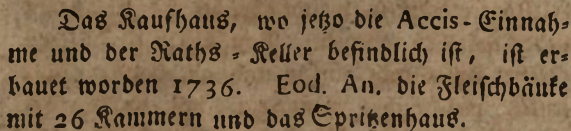 Das Kaufhaus, wo jetzo die Accis-Einnah-
me und der Raths-Keller befindlich ist, ist er-
bauet worden 1736. Eod. An. die Fleischbänke
mit 26 Kammern und das Spritzenhaus.